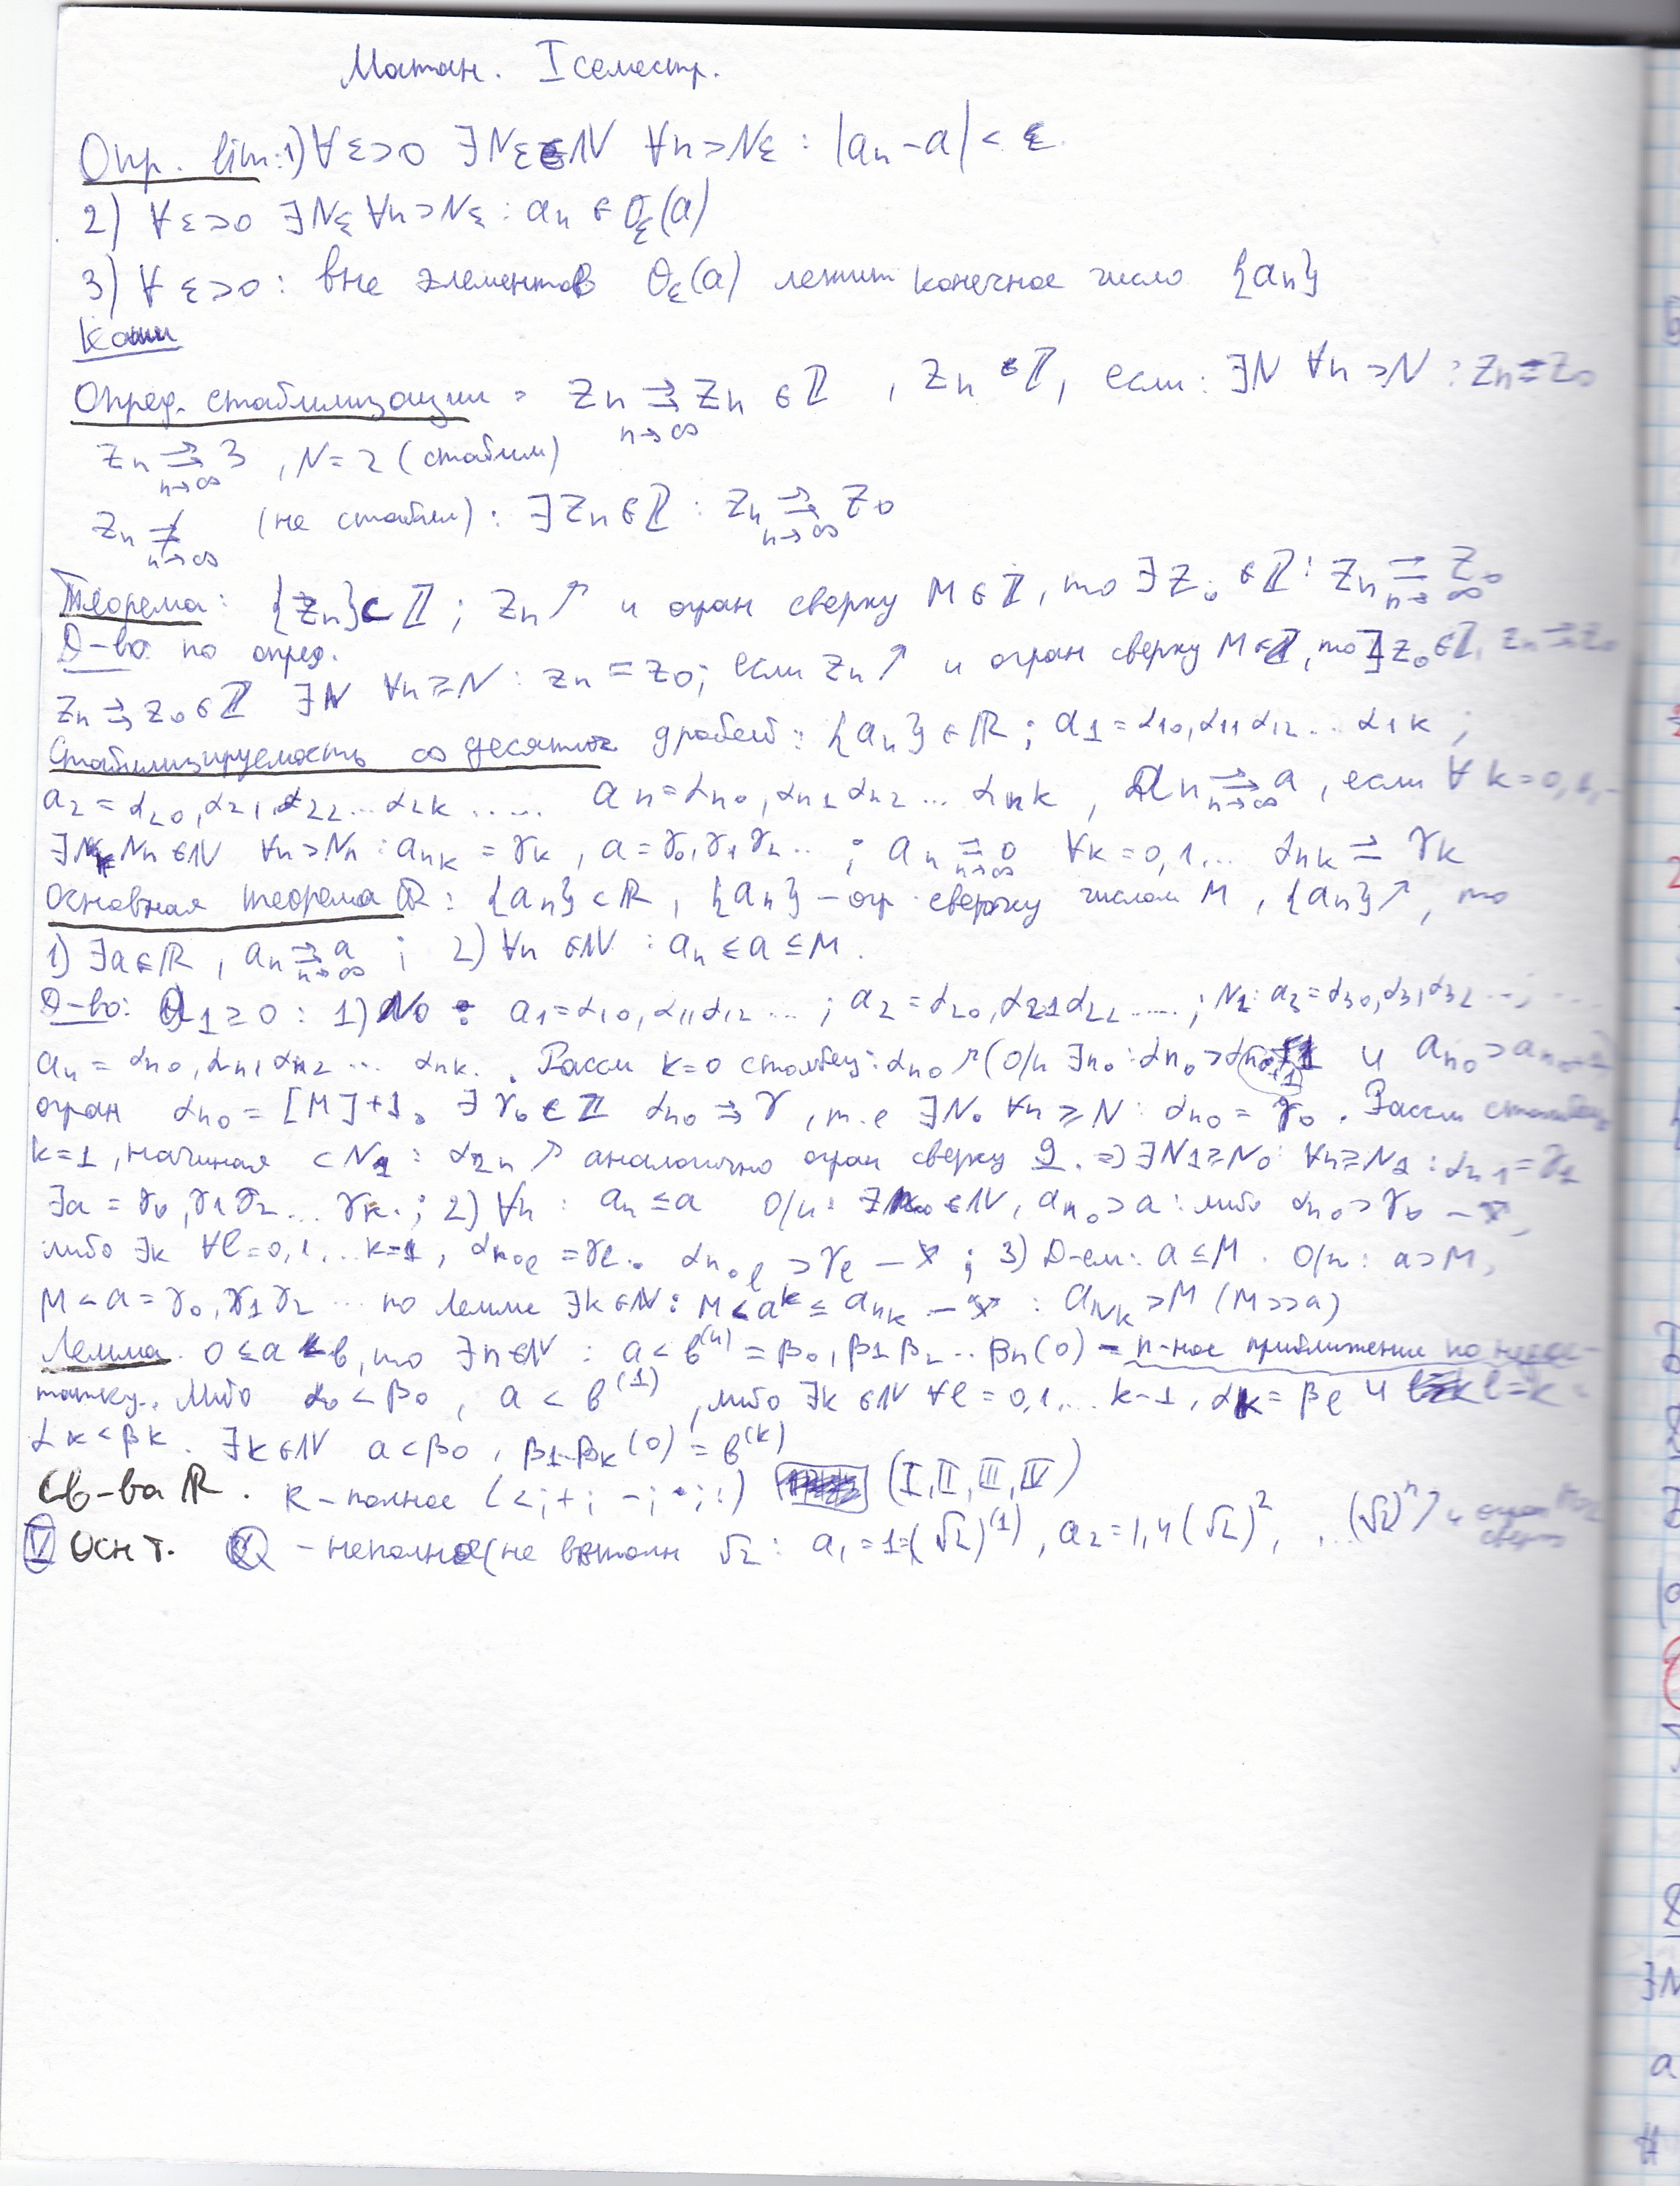 Матан. I семестр.
Опр. lim: 1) ∀ε>0 ∃Nε∈ℕ ∀n>Nε : |an - a| < ε
2) ∀ε>0 ∃Nε ∀n>Nε : an ∈ Oε(a)
3) ∀ε>0 : вне элементов Oε(a) лежит конечное число {an}
Коши
Опред. стабилизации : Zn ⇉ Zn ∈ ℤ , Zn ∈ ℤ, если : ∃N ∀n>N : Zn = Z0
n→∞
Zn ⇉ 3 , N=2 (стабил)
n→∞
Zn ⇉̸ (не стабил) : ∃Zn∈ℤ : Zn ⇉ Z0
n→∞ n→∞
Теорема : {Zn}⊂ℤ ; Zn↗ и огран сверху M∈ℤ, то ∃Z0∈ℤ : Zn ⇉ Z0
n→∞
Д-во: по опред.
Zn ⇉ Z0∈ℤ ∃N ∀n≥N : Zn = Z0; если Zn↗ и огран сверху M∈ℤ, то ∃Z0∈ℤ, Zn ⇉ Z0
Стабилизируемость со десятич дробей : {an}∈ℝ ; a1 = α10,α11 α12 ... α1k ;
a2 = α20,α21,α22 ... α2k ..... an = αn0,αn1 αn2 ... αnk , an ⇉ a , если ∀k=0,1,..
n→∞
∃ Nn∈ℕ ∀n>Nn : ank = γk , a = γ0,γ1γ2 .. ; an ⇉ 0 ∀k=0,1... αnk ⇉ γk
n→∞
Основная теорема ℝ : {an}⊂ℝ, {an} – огр сверху числом M , {an}↗, то
1) ∃a∈ℝ , an ⇉ a ; 2) ∀n∈ℕ : an ≤ a ≤ M.
n→∞
Д-во: a1≥0 : 1) N0 : a1=α10,α11α12 ... ; a2=α20,α21α22 ..... ; N2: a3=α30,α31α32 ...; ....
an = αn0,αn1αn2 ... αnk. Рассм k=0 столбец : αn0↗ (О/п ∃n0 : αn0 > αn0+1 и an0 > an0+1)
огран αn0 = [M]+1. ∃γ0∈ℤ αn0 ⇉ γ , т.е ∃N0 ∀n≥N : αn0 = γ0 . Рассм столбец
k=1 , начиная с N1 : α2n↗ аналогично огран сверху 9. ⇒ ∃N1≥N0 : ∀n≥N1 : αn1=γ1
∃a = γ0,γ1γ2 ... γk. ; 2) ∀n : an ≤ a О/п : ∃n0∈ℕ, an0>a : либо αn0>γ0 – ,
либо ∃k ∀l=0,1...k-1, αn0l = γl . αn0l > γl – ; 3) Д-ем : a≤M . О/п : a>M,
M < a = γ0,γ1γ2 ... по лемме ∃k∈ℕ : M < a^k ≤ ank – : aNk > M (M>>a)
Лемма. 0≤a<b, то ∃n∈ℕ : a<b^(n) = β0,β1β2 .. βn(0) – n-ное приближение по недос-
татку. Либо α0<β0 , a<b^(1) , либо ∃k∈ℕ ∀l=0,1...k-1, αk=βl и l=k
αk<βk . ∃k∈ℕ a<β0 , β1..βk(0) = b^(k)
Св-ва ℝ. R – полное (<;+;-;•;:) (I,II,III,IV)
V Осн Т. Q – неполное (не выполн √2 : a1 = 1=(√2)^(1) , a2 = 1,4(√2)^2 , ...(√2)^n↗ и огран
сверху